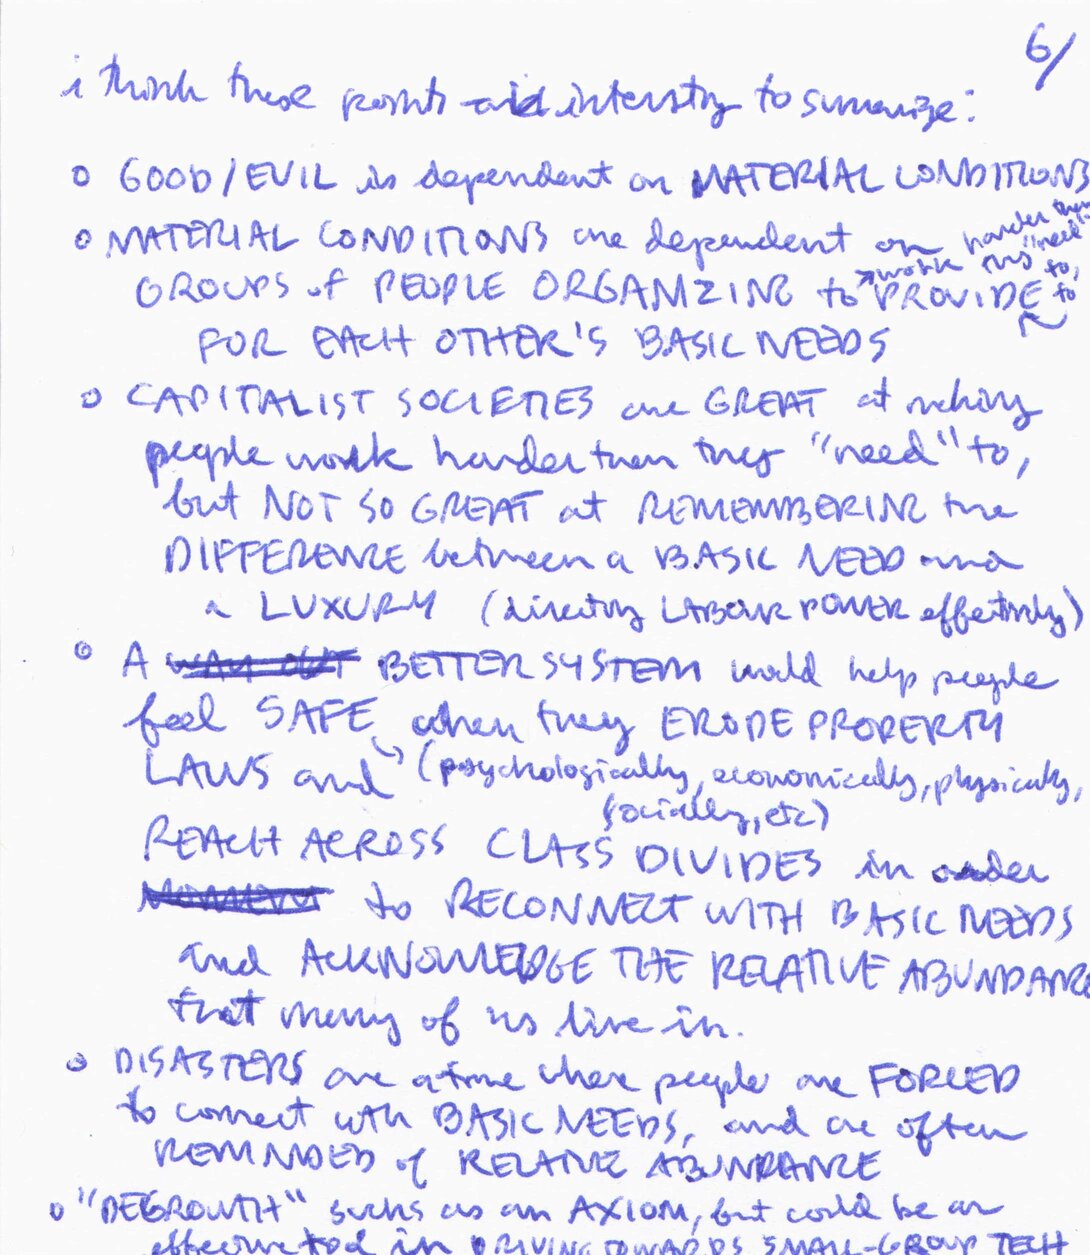 6/
i think these points are interesting to summarize:
o GOOD/EVIL is dependent on MATERIAL CONDITIONS
o MATERIAL CONDITIONS are dependent on
GROUPS of PEOPLE ORGANIZING to PROVIDE
work harder than
they "need" to, to
FOR EACH OTHER'S BASIC NEEDS
o CAPITALIST SOCIETIES are GREAT at making
people work harder than they "need" to,
but NOT SO GREAT at REMEMBERING the
DIFFERENCE between a BASIC NEED and
a LUXURY (directing LABOUR POWER effectively)
o A WAY OUT BETTER SYSTEM would help people
feel SAFE when they ERODE PROPERTY
LAWS and (psychologically, economically, physically,
socially, etc)
REACH ACROSS CLASS DIVIDES in order
to RECONNECT WITH BASIC NEEDS
and ACKNOWLEDGE THE RELATIVE ABUNDANCE
that many of us live in.
o DISASTERS are a time where people are FORCED
to connect with BASIC NEEDS, and are often
REMINDED of RELATIVE ABUNDANCE
o "DEGROWTH" sucks as an AXIOM, but could be an
effective tool in DRIVING TOWARDS SMALL-GROUP TECH